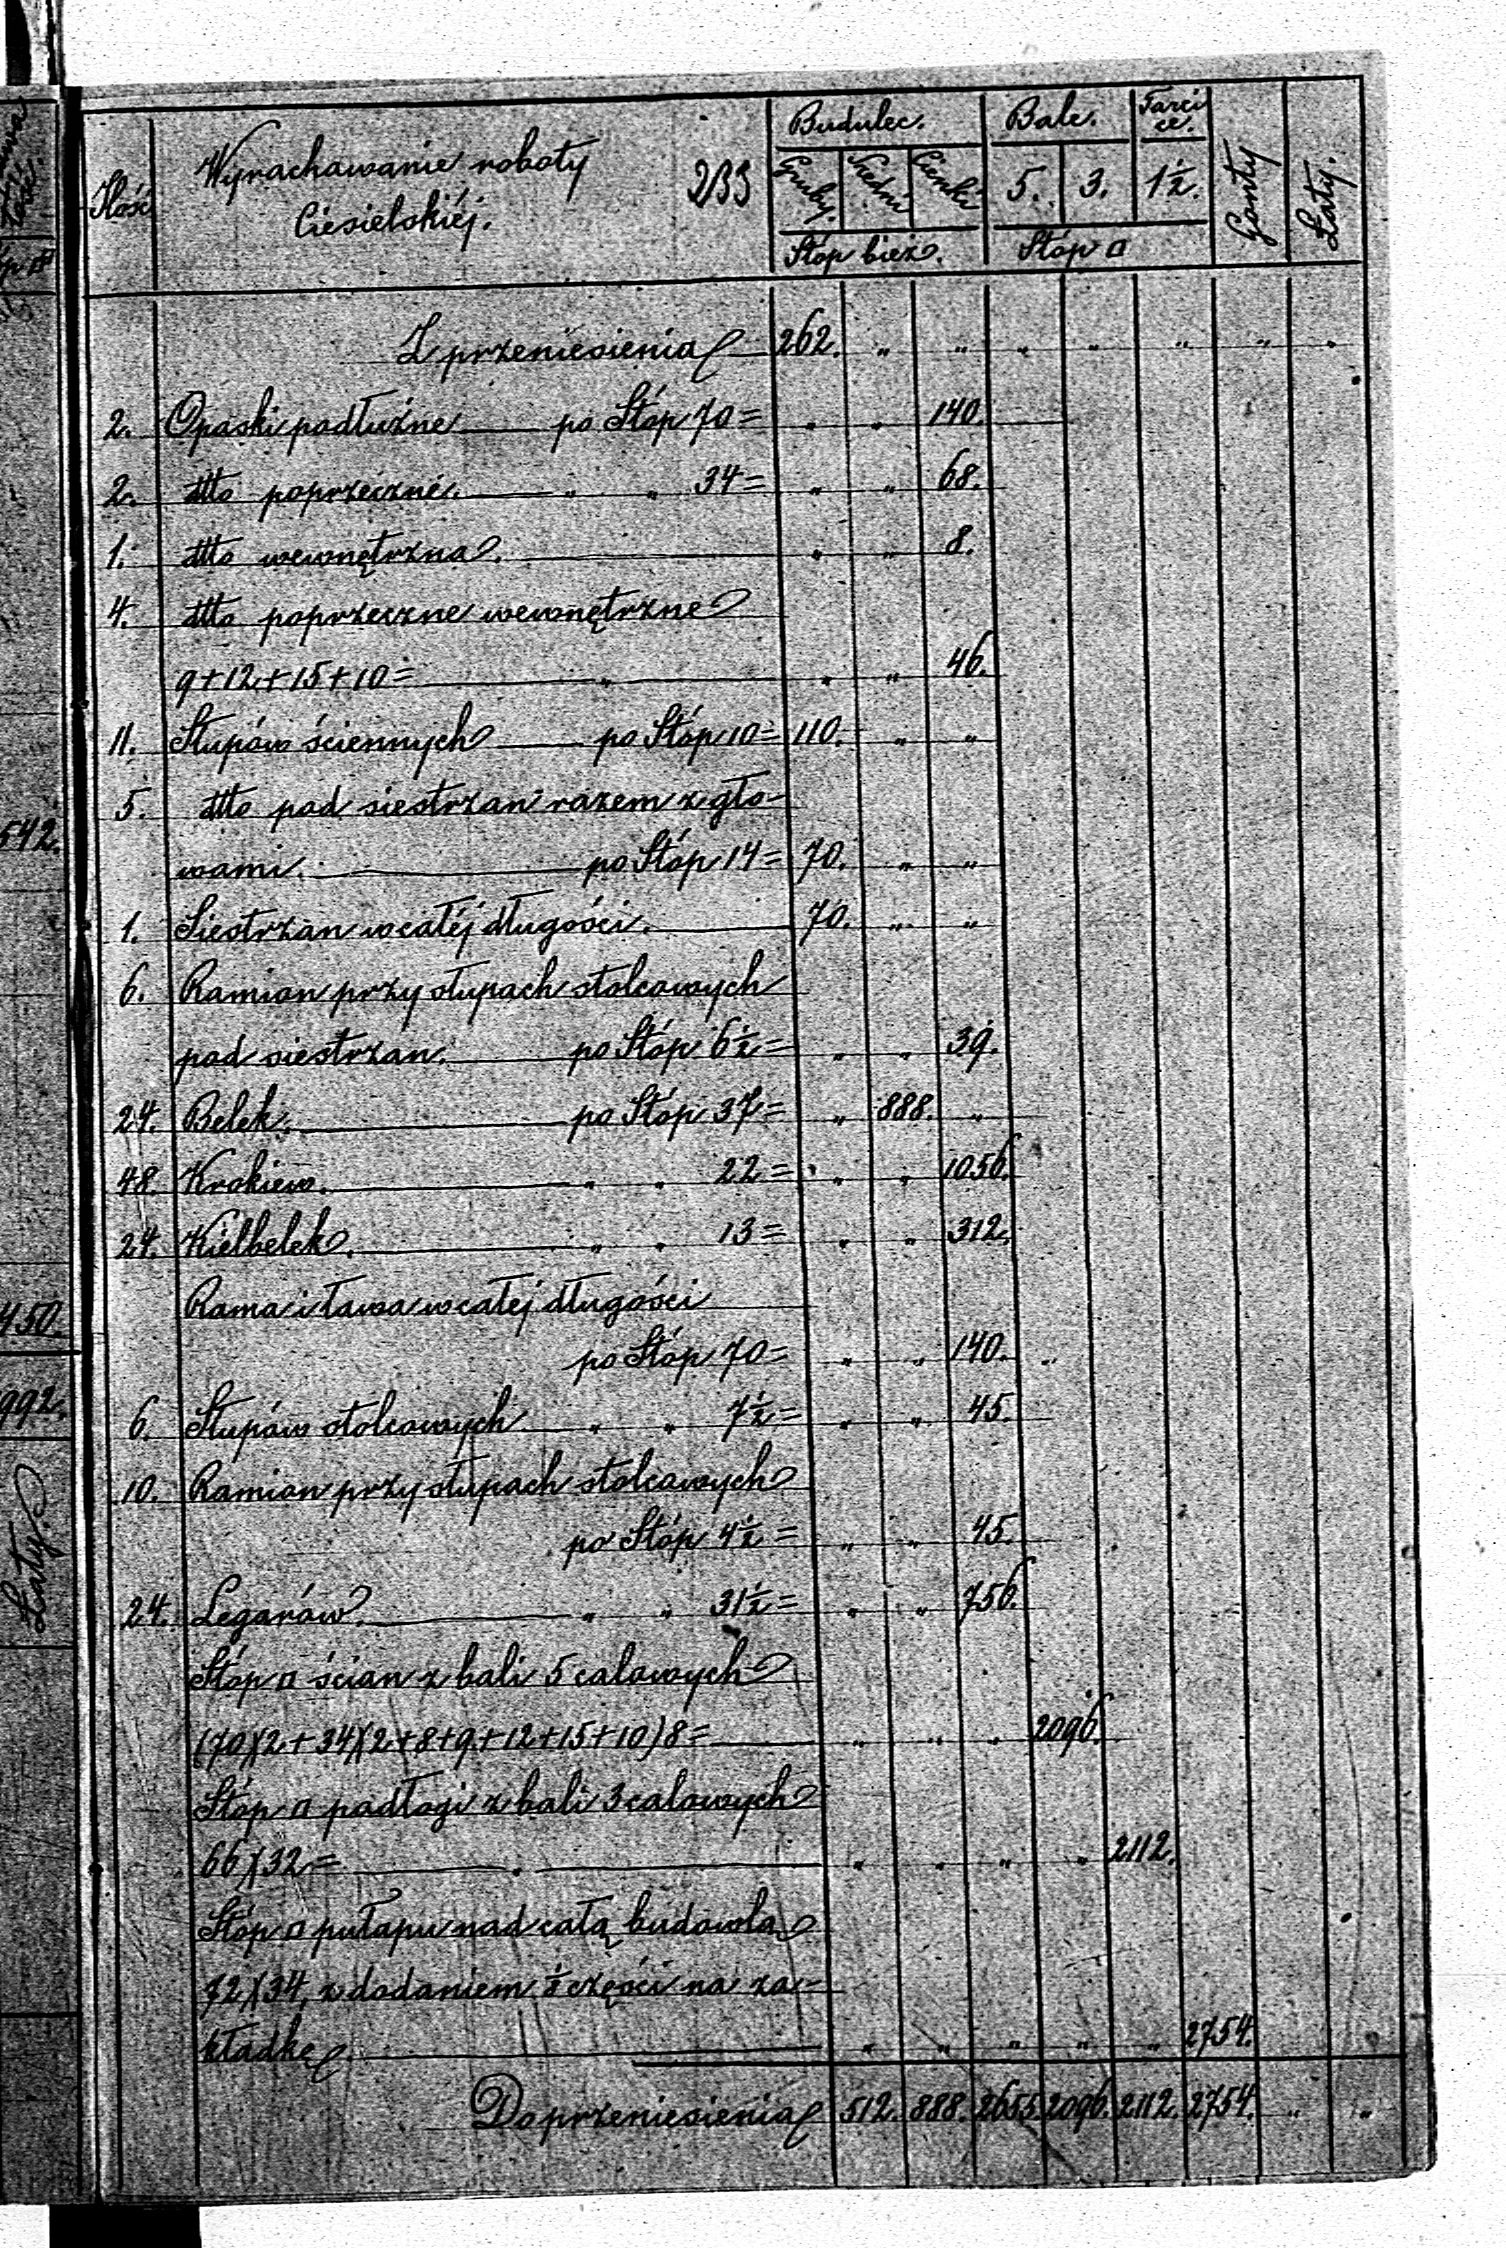 Ilość Wyrachowanie roboty Ciesielskiéj. 233 Budulec. Bale. Tarcice. Gonty Łaty.
Gruby. Średni Cienki 5. 3. 1½.
Stóp bież. Stóp □
Z przeniesienia 262. „ „ „ „ „ „ „
2. Opaski podłużne po Stóp 70 = „ „ 140.
2. dtto poprzeczné. „ „ 34 = „ „ 68.
1. dtto wewnętrzna. „ „ 8.
4. dtto poprzeczne wewnętrzne
9+12+15+10= „ „ „ 46.
11. Słupów ściennych po Stóp 10 = 110. „ „
5. dtto pod siestrzan razem z gło-
wami. po Stóp 14 = 70. „ „
1. Siestrzan w całéj długości. 70. „ „
6. Ramion przy słupach stolcowych
pod siestrzan. po Stóp 6½ = „ „ 39.
24. Belek. po Stóp 37 = „ 888. „
48. Krokiew. „ „ 22 = „ „ 1056.
24. Kielbelek. „ „ 13 = „ „ 312.
Rama i ława w całej długości
po Stóp 70 = „ „ 140. „
6. Słupów stolcowych „ „ 7½ = „ „ 45.
10. Ramion przy słupach stolcowych
po Stóp 4½ = „ „ 45.
24. Legarów. „ „ 31½ = „ „ 756.
Stóp □ ścian z bali 5 calowych
(70)(2+34)(2+8+9+12+15+10)8= „ „ „ 2096.
Stóp □ podłogi z bali 3 calowych
66)(32= „ „ „ „ „ 2112.
Stóp □ pułapu nad całą budowlą
72)(34, z dodaniem części na za-
kładkę „ „ „ „ „ 2754.
Do przeniesienia 512. 888. 2655. 2096. 2112. 2754. „ „
542.
450.
992.
Łaty.